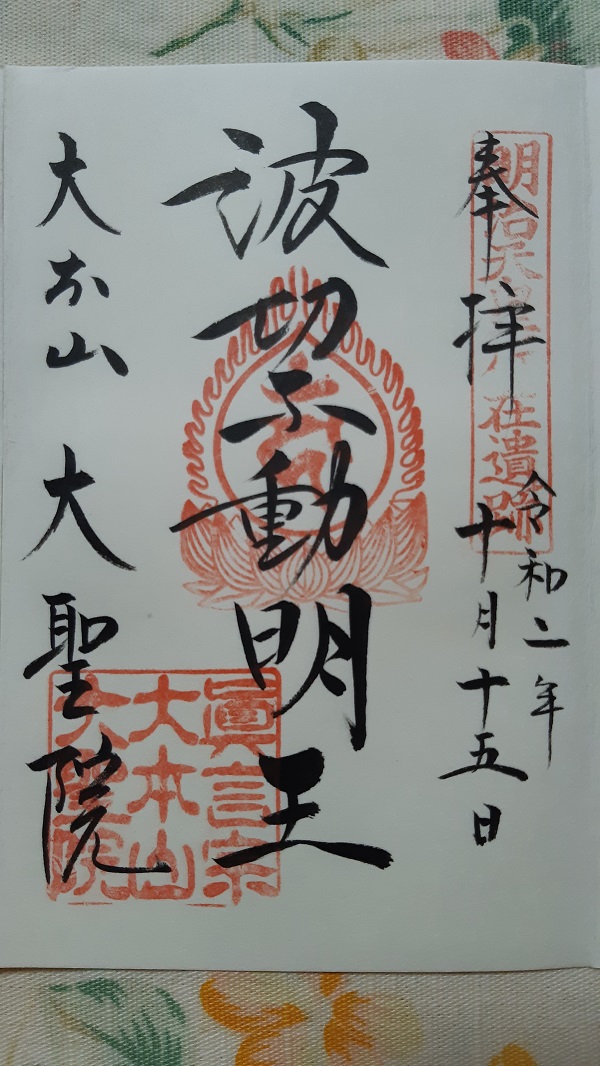 奉拝
明治天皇 在遺跡
令和二年
十月十五日
波切不動明王
大本山 大聖院
眞言宗
大本山
大聖院